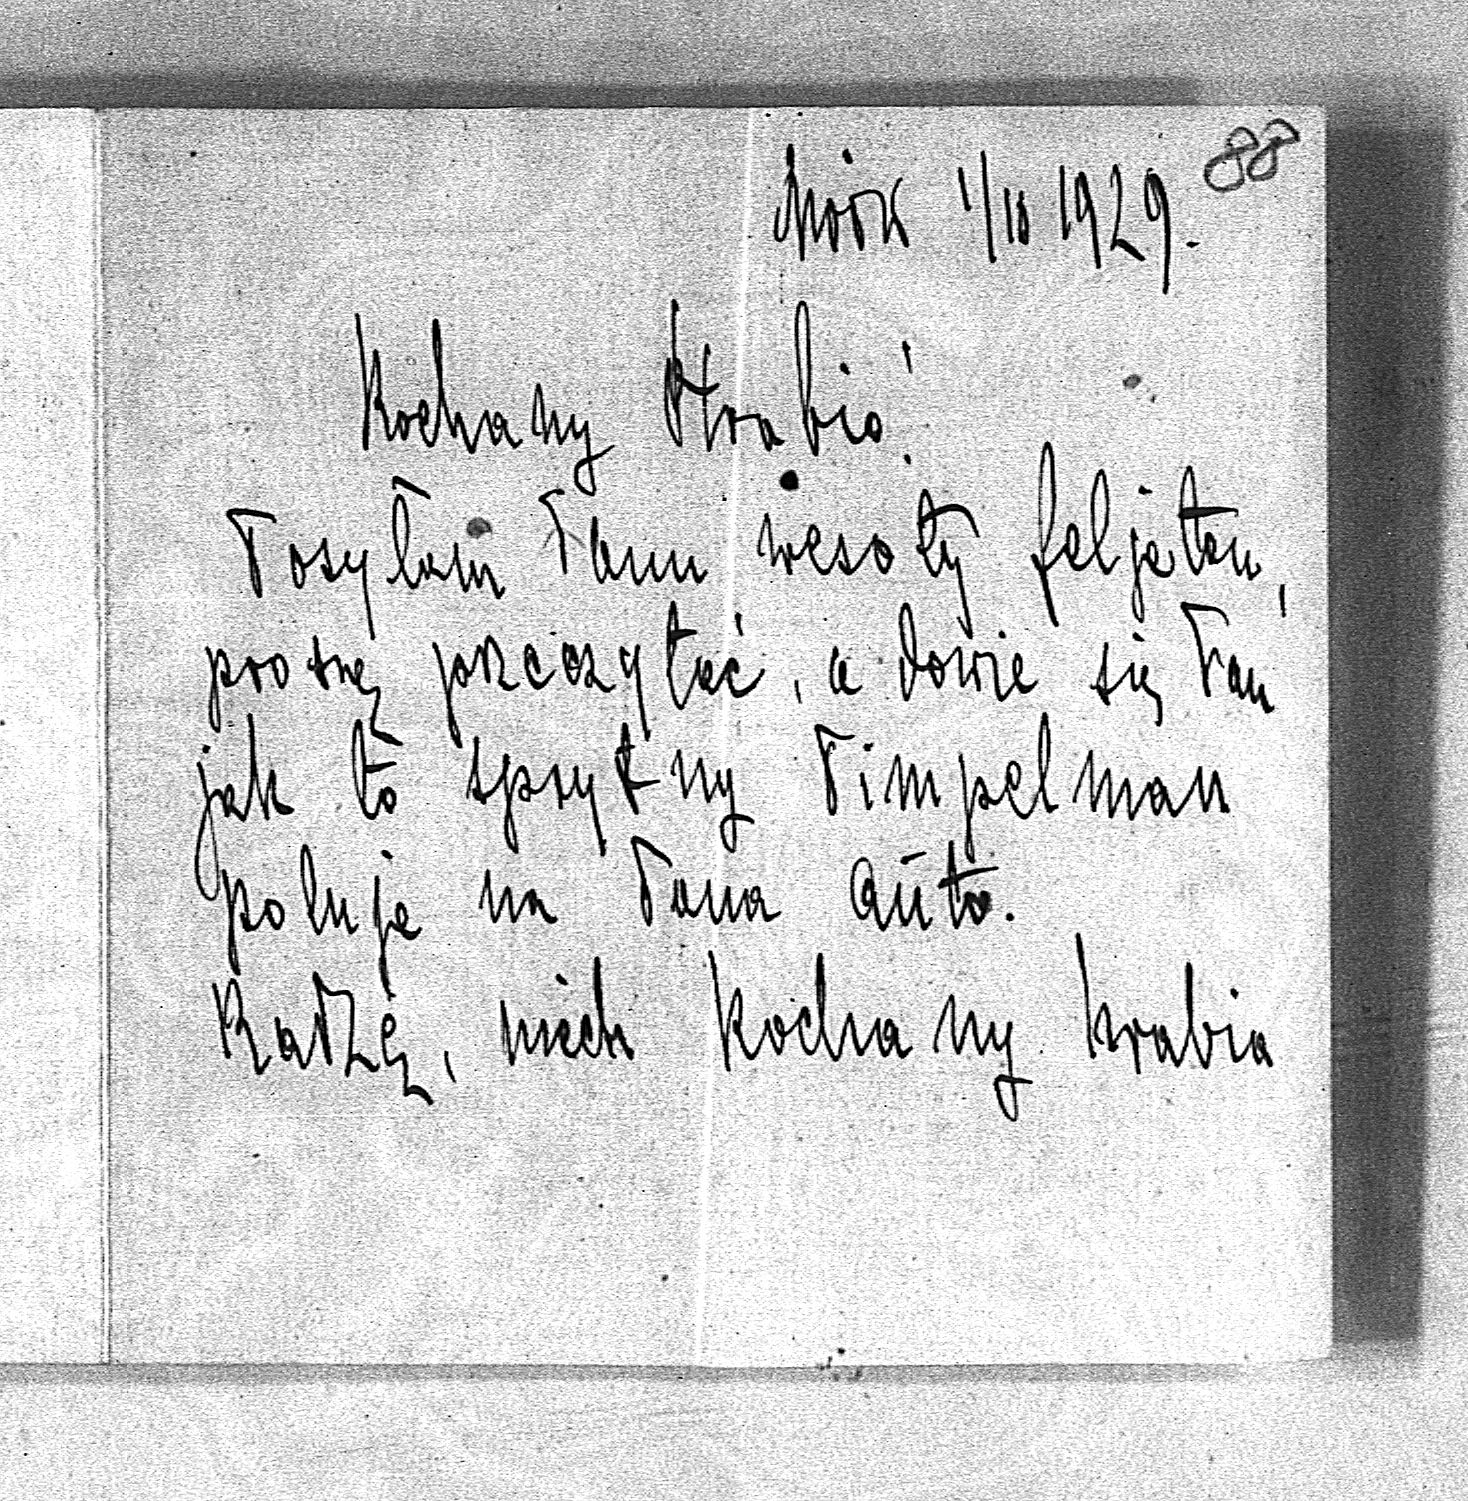 88
1/10 1929.
Kochany Hrabio!
Posyłam Panu wesoły feljeton,
proszę przeczytać, a dowie się Pan
jak to sprytny Pimpelman
poluje na Pana auto.
Radzę, niech kochany hrabia